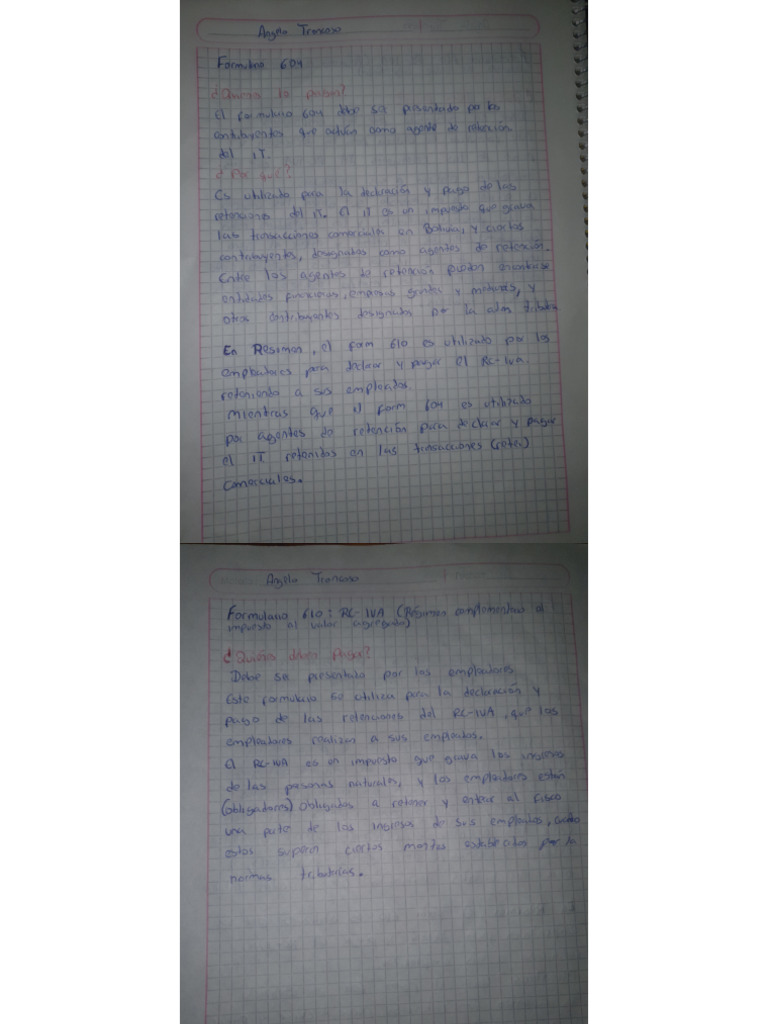 Angela Troncoso
Formulario 604
¿Quiénes lo pagan?
El formulario 604 debe ser presentado por los
contribuyentes que actúen como agente de retención
del IT.
¿Por qué?
Es utilizado para la declaración y pago de las
retenciones del IT. El IT es un impuesto que grava
las transacciones comerciales en Bolivia, y ciertos
contribuyentes, designados como agentes de retención.
Entre los agentes de retención pueden encontrarse
entidades financieras, empresas grandes y medianas, y
otros contribuyentes designados por la adm tributaria
En Resumen, el form 610 es utilizado por los
empleadores para declarar y pagar el RC-IVA.
reteniendo a sus empleados.
mientras que el form 604 es utilizado
por agentes de retención para declarar y pagar
el IT retenidos en las transacciones (reten)
comerciales.
Angela Troncoso
Formulario 610: RC-IVA (Régimen complementario al
impuesto al valor agregado)
¿Quiénes deben Pagar?
Debe ser presentado por los empleadores
Este formulario se utiliza para la declaración y
pago de las retenciones del RC-IVA, que los
empleadores realizan a sus empleados.
El RC-IVA es un impuesto que grava los ingresos
de las personas naturales, y los empleadores están
(obligadores) obligados a retener y enterar al fisco
una parte de los ingresos de sus empleados, cuando
estos superen ciertos montos establecidos por la
normas tributarias.